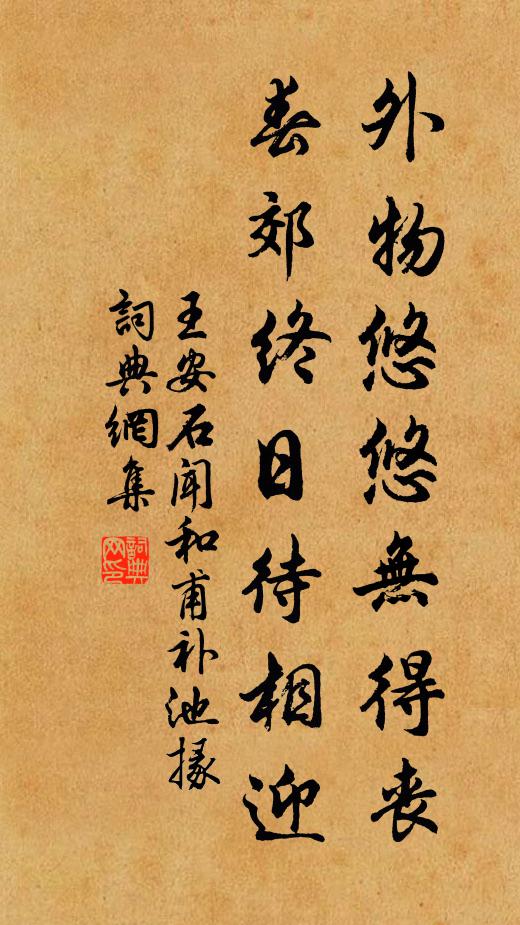 外物悠悠無得喪
春郊終日待相迎
王安石闻和甫补池掾
詞典網集
詞典网印